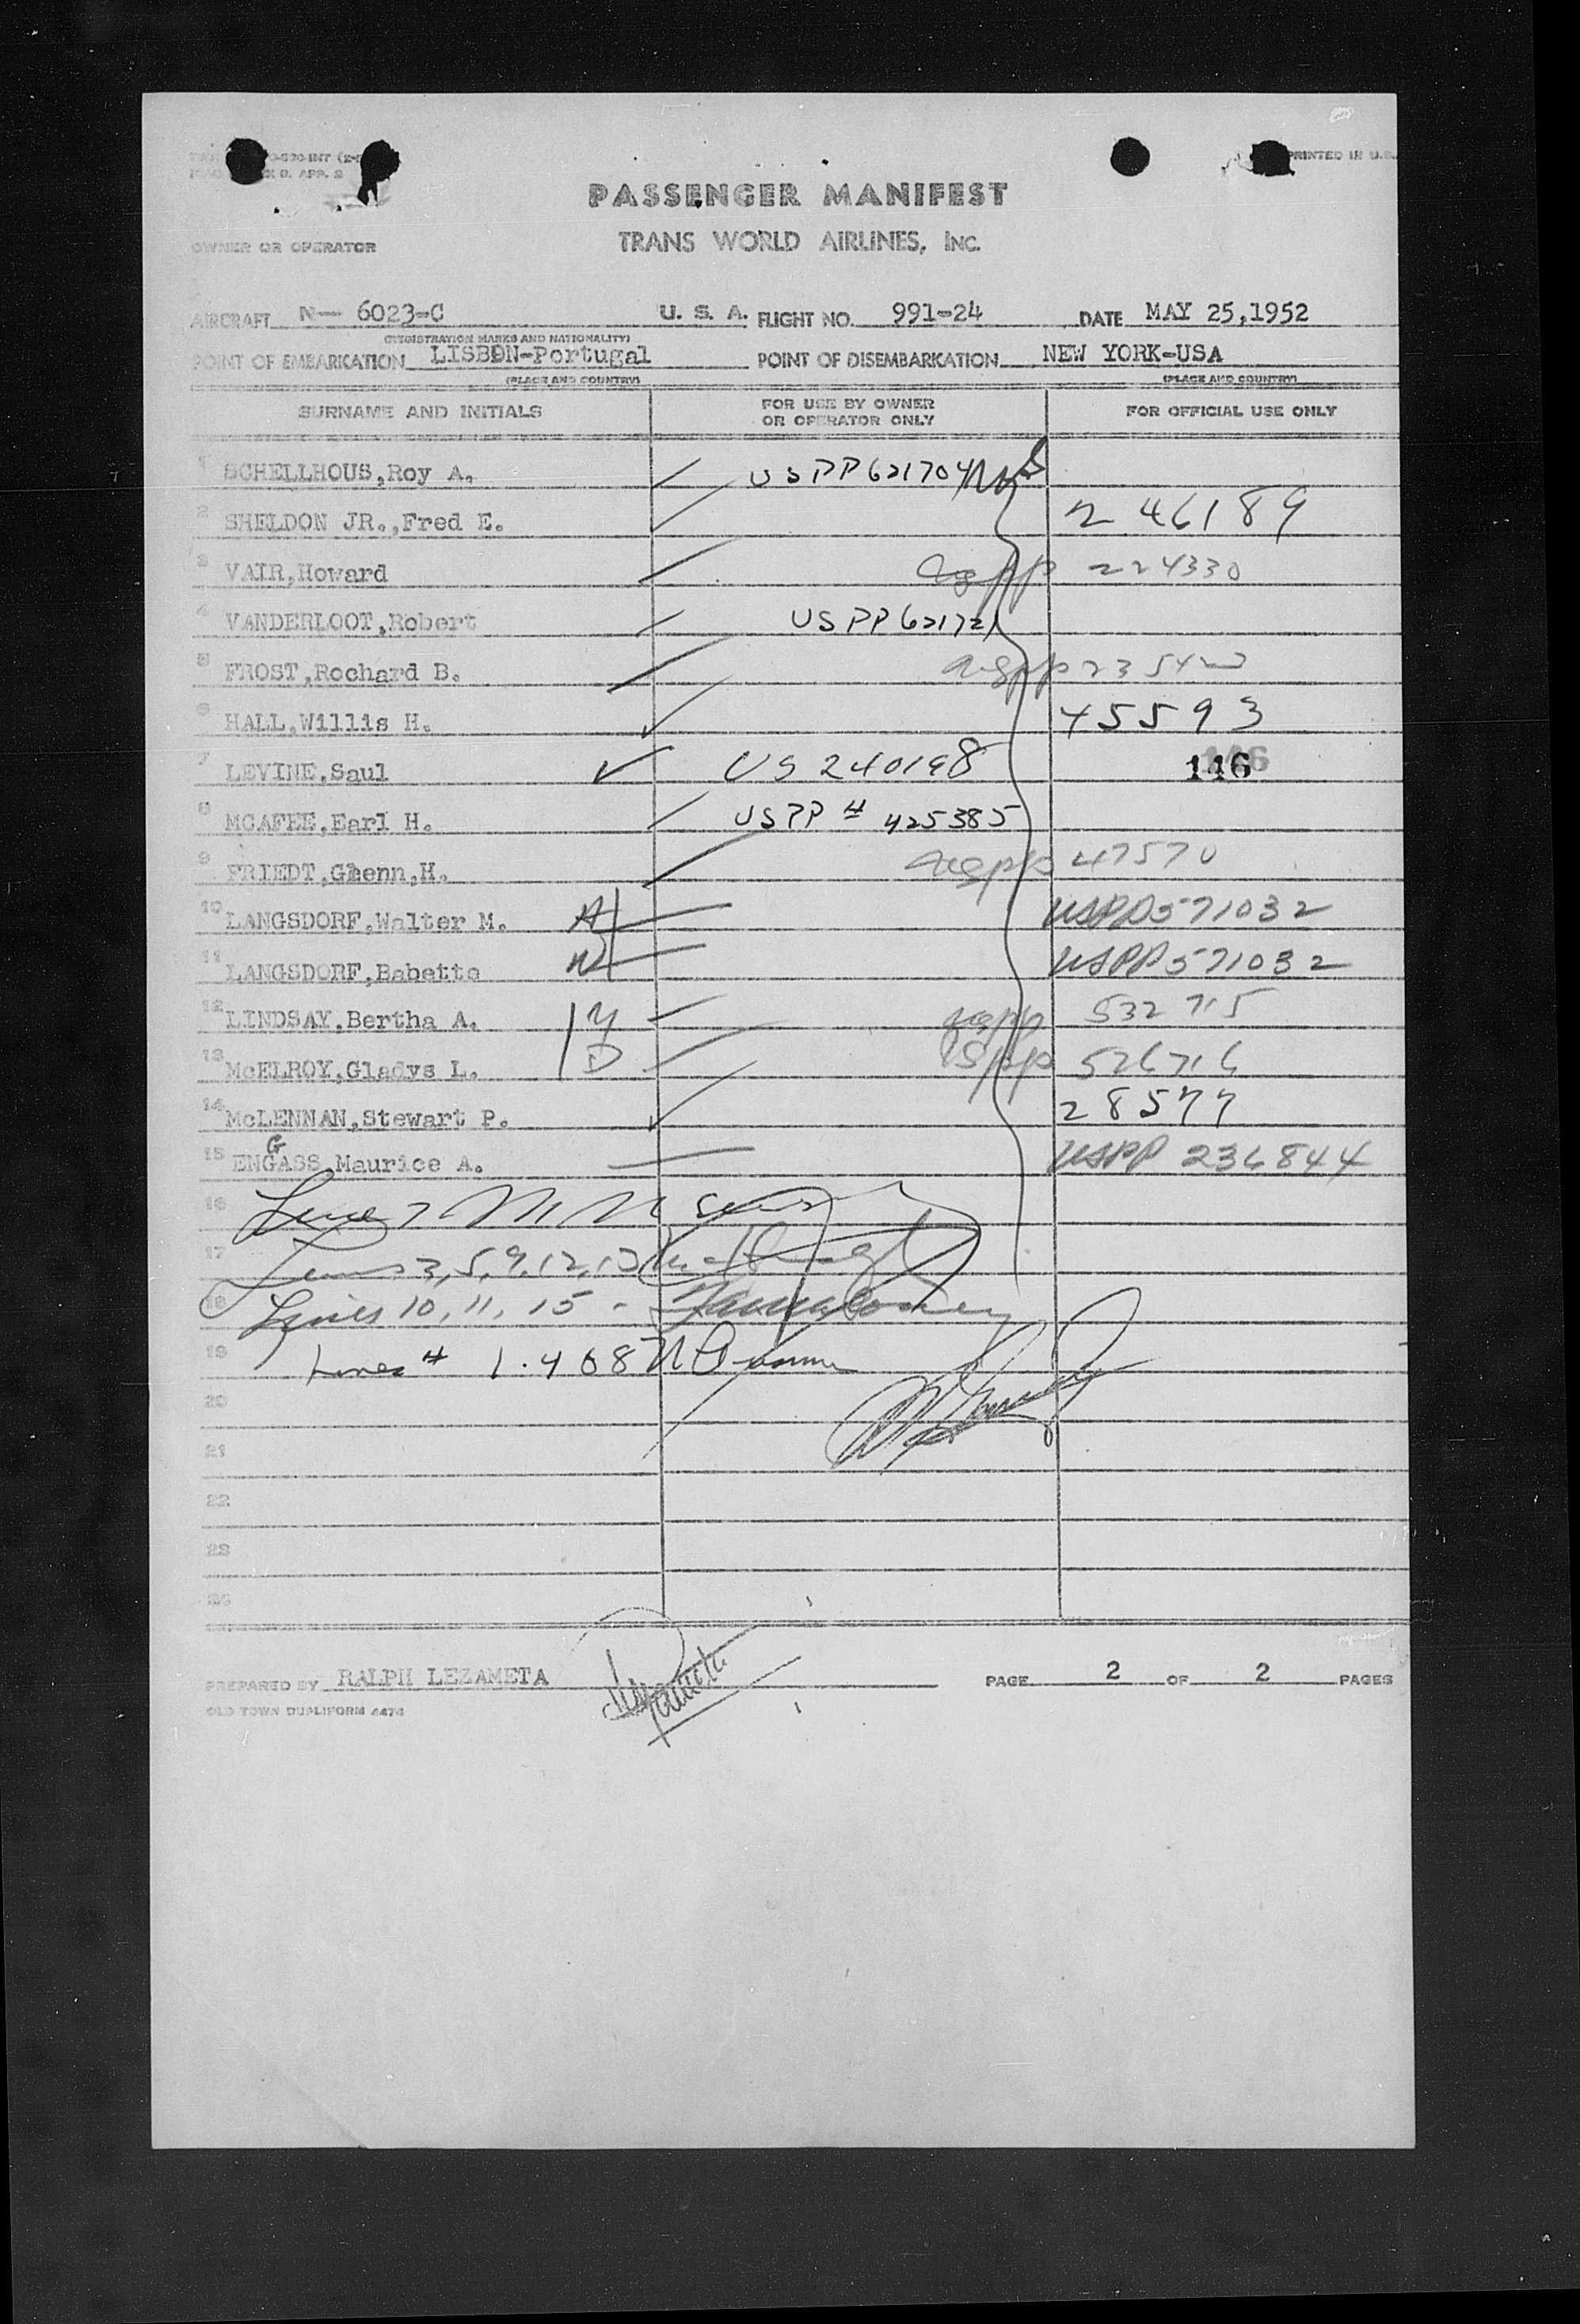 PRINTED IN U.S.
PASSENGER MANIFEST
TRANS WORLD AIRLINES, INC.
OWNER OR OPERATOR
AIRCRAFT N— 6023-C U. S. A. FLIGHT NO. 991-24 DATE MAY 25,1952
(REGISTRATION MARKS AND NATIONALITY)
POINT OF EMBARKATION LISBON-Portugal POINT OF DISEMBARKATION NEW YORK-USA
(PLACE AND COUNTRY) (PLACE AND COUNTRY)
SURNAME AND INITIALS FOR USE BY OWNER OR OPERATOR ONLY FOR OFFICIAL USE ONLY
1 SCHELLHOUS,Roy A. USPP621704
2 SHELDON JR.,Fred E. 246189
3 VAIR,Howard 224330
4 VANDERLOOT,Robert USPP62172
5 FROST,Rochard B.
6 HALL,Willis H. 45593
7 LEVINE,Saul US 240198 146
8 MCAFEE,Earl H. USPP # 425385
9 FRIEDT,Glenn,H. 47570
10 LANGSDORF,Walter M. USPP571032
11 LANGSDORF,Babette USPP571032
12 LINDSAY,Bertha A. 532715
13 McELROY,Gladys L. D 526716
14 McLENNAN,Stewart P. 28577
15 ENGASS,Maurice A. G USPP 236844
16
17 3,5,9,12,13
18 Lines 10, 11, 15 -
19 Lines # 1.4 8
20
21
22
23
24
PREPARED BY RALPH LEZAMETA PAGE 2 OF 2 PAGES
OLD TOWN DUPLIFORM 4474